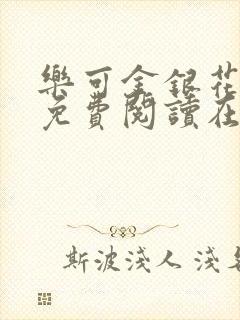 樂可金銀花
免費閱讀在
斯波淺人 淺